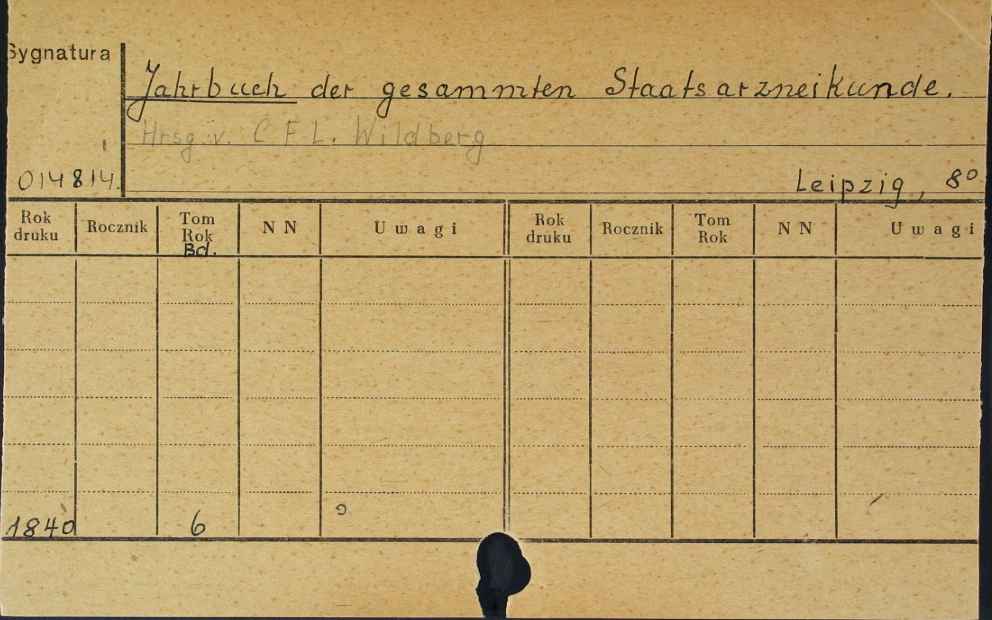 Sygnatura
Jahrbuch der gesammten Staatsarzneikunde.
Hrsg. v. C F L. Wildberg
014814.
Leipzig, 8º
Rok druku Rocznik Tom Rok Bd. N N Uwagi Rok druku Rocznik Tom Rok N N Uwagi
1840 6